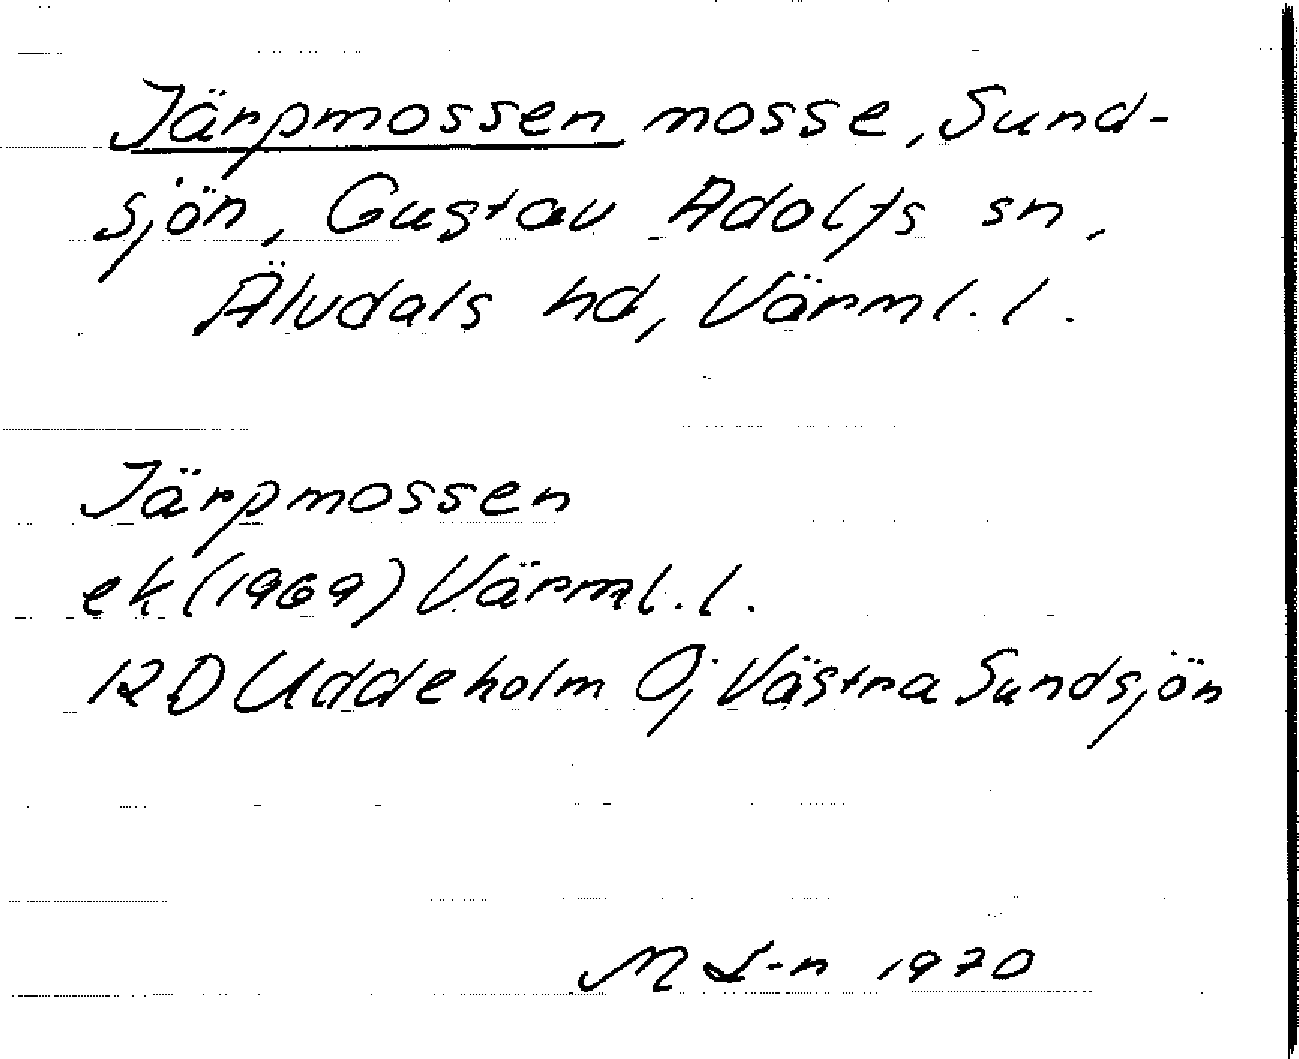 Järpmossen mosse, Sund-
sjön, Gustav Adolfs sn,
Älvdals hd, Värml. l.
Järpmossen
ek (1969) Värml. l.
12 D Uddeholm 0j Västra Sundsjön
M L-n 1970